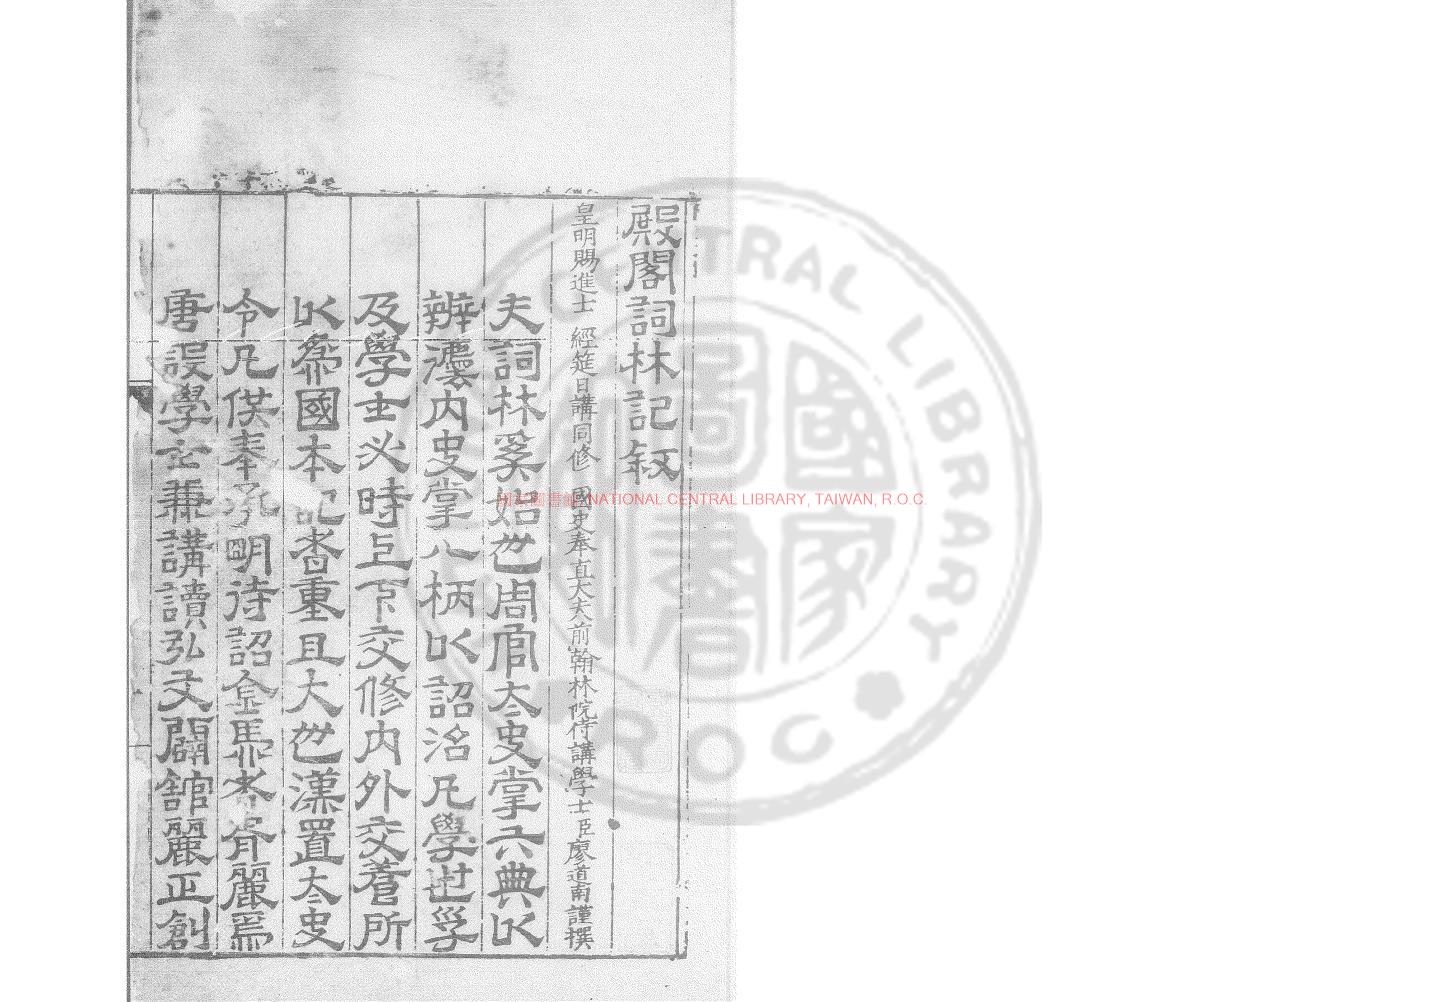 殿閣詞林記敍
皇明賜進士 經筵日講同修 國史奉直大夫前翰林院侍講學士臣廖道南謹撰
夫詞林奚始也周官太史掌六典以
辨灋內史掌八柄以詔治凡學世孚
及學士必時上下交修內外交養所
以爲國本記者重且大也漢置太史
令凡供奉承明待詔金馬者胥麗焉
唐設學士兼講讀弘文闢館麗正創
國家圖書館 NATIONAL CENTRAL LIBRARY, TAIWAN, R.O.C.
CENTRAL LIBRARY
R O C